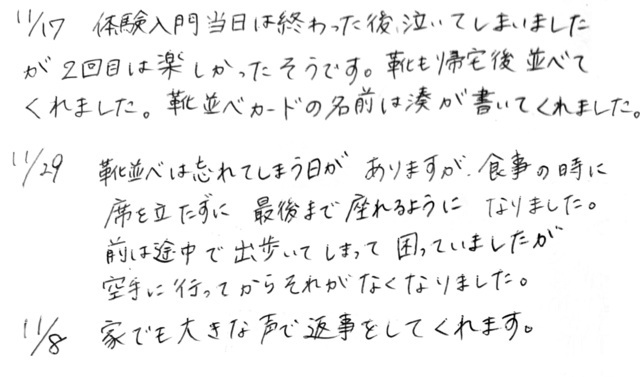 11/17 体験入門当日は終わった後、泣いてしまいました
が2回目は楽しかったそうです。靴も帰宅後並べて
くれました。靴並べカードの名前は湊が書いてくれました。
11/29 靴並べは忘れてしまう日がありますが、食事の時に
席を立たずに 最後まで座れるように なりました。
前は途中で出歩いてしまって困っていましたが
空手に行ってからそれがなくなりました。
11/8 家でも大きな声で返事をしてくれます。